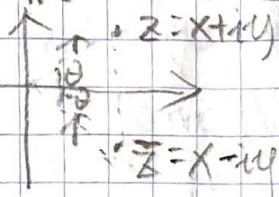 z = x + iy
θ
-θ
z̅ = x - iy